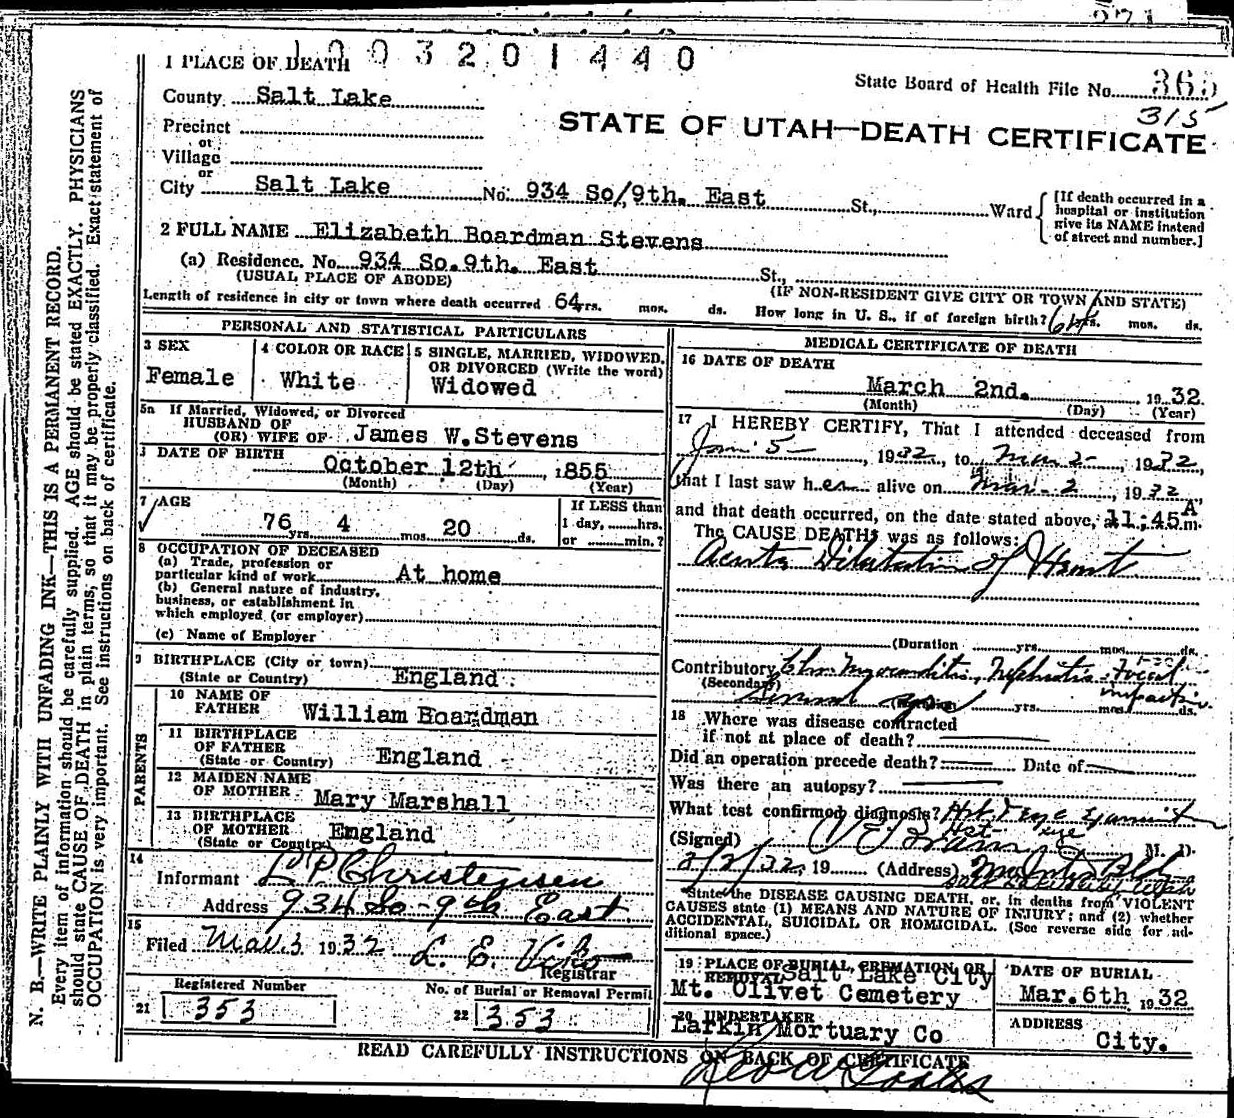 1003201440
1 PLACE OF DEATH
State Board of Health File No. 365
315
County Salt Lake
STATE OF UTAH—DEATH CERTIFICATE
Precinct
or
Village
or
City Salt Lake No. 934 So/9th. East St., Ward
[If death occurred in a
hospital or institution
give its NAME instead
of street and number.]
2 FULL NAME Elizabeth Boardman Stevens
(a) Residence. No. 934 So. 9th. East St.,
(USUAL PLACE OF ABODE) (IF NON-RESIDENT GIVE CITY OR TOWN AND STATE)
Length of residence in city or town where death occurred 64 yrs. mos. ds. How long in U. S., if of foreign birth? 64 yrs. mos. ds.
PERSONAL AND STATISTICAL PARTICULARS
3 SEX
Female
4 COLOR OR RACE
White
5 SINGLE, MARRIED, WIDOWED,
OR DIVORCED (Write the word)
Widowed
5a If Married, Widowed, or Divorced
HUSBAND OF
(OR) WIFE OF James W. Stevens
DATE OF BIRTH
October 12th 1855
(Month) (Day) (Year)
7 AGE
76 yrs. 4 mos. 20 ds.
If LESS than
1 day, hrs.
or min.?
8 OCCUPATION OF DECEASED
(a) Trade, profession or
particular kind of work At home
(b) General nature of industry,
business, or establishment in
which employed (or employer)
(c) Name of Employer
9 BIRTHPLACE (City or town)
(State or Country) England
PARENTS
10 NAME OF
FATHER William Boardman
11 BIRTHPLACE
OF FATHER
(State or Country) England
12 MAIDEN NAME
OF MOTHER Mary Marshall
13 BIRTHPLACE
OF MOTHER
(State or Country) England
14
Informant L P Christensen
Address 934 So - 9th East
15
Filed Mar. 3 1932 L. E. Viko
Registrar
Registered Number
21 353
No. of Burial or Removal Permit
22 353
MEDICAL CERTIFICATE OF DEATH
16 DATE OF DEATH
March 2nd. 1932.
(Month) (Day) (Year)
17 I HEREBY CERTIFY, That I attended deceased from
Jan 5, 1932, to Mar 2, 1932,
that I last saw her alive on Mar. 2, 1932
and that death occurred, on the date stated above, at 11:45 A m.
The CAUSE DEATH was as follows:
Acute Dilatation of Heart
(Duration yrs. mos. ds.
Contributory Chr. Myocarditis, Nephritis, Fecal
(Secondary) impaction.
yrs. mos. ds.
18 Where was disease contracted
if not at place of death?
Did an operation precede death? Date of
Was there an autopsy?
What test confirmed diagnosis?
(Signed) M. D.
3/2/32, 19 (Address) McIntyre Bld
Salt Lake City Utah
State the DISEASE CAUSING DEATH, or, in deaths from VIOLENT
CAUSES state (1) MEANS AND NATURE OF INJURY; and (2) whether
ACCIDENTAL, SUICIDAL OR HOMICIDAL. (See reverse side for ad-
ditional space.)
19 PLACE OF BURIAL, CREMATION OR
REMOVAL Salt Lake City
Mt. Olivet Cemetery
DATE OF BURIAL
Mar. 6th 1932
20 UNDERTAKER
Larkin Mortuary Co
ADDRESS
City.
READ CAREFULLY INSTRUCTIONS ON BACK OF CERTIFICATE
N. B.—WRITE PLAINLY WITH UNFADING INK—THIS IS A PERMANENT RECORD.
Every item of information should be carefully supplied. AGE should be stated EXACTLY. PHYSICIANS
should state CAUSE OF DEATH in plain terms, so that it may be properly classified. Exact statement of
OCCUPATION is very important. See instructions on back of certificate.